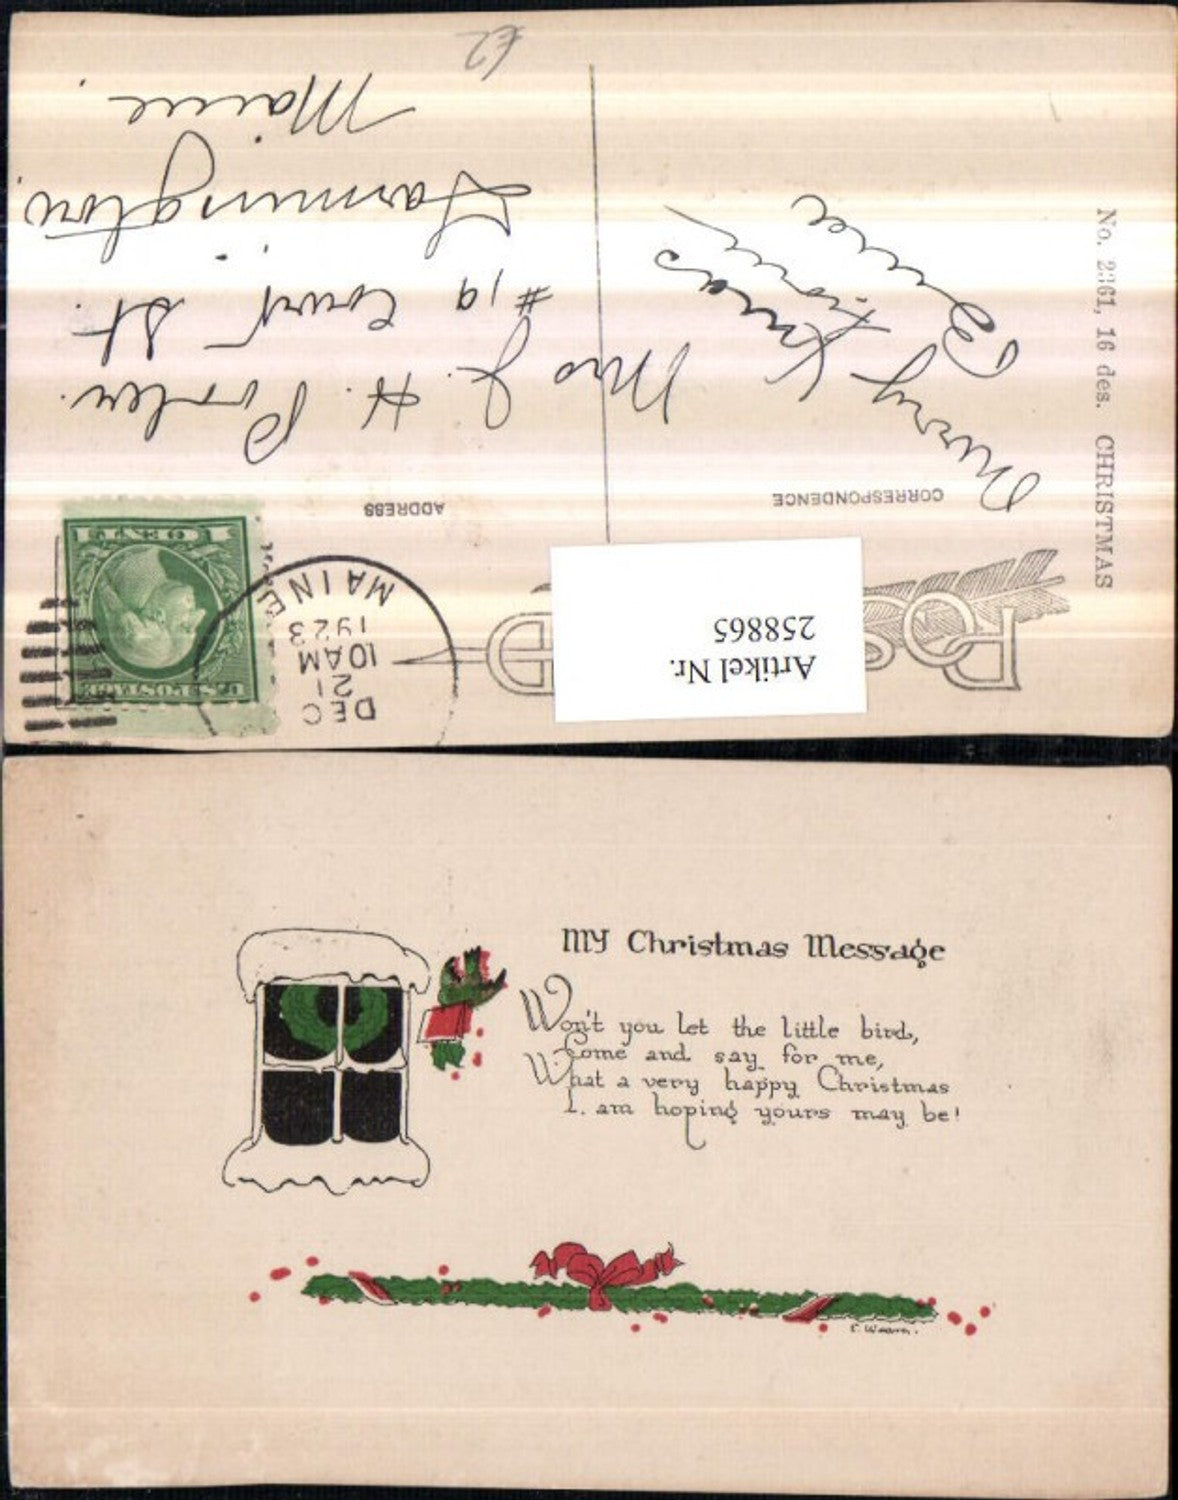 No. 2361, 16 des. CHRISTMAS
DEC
21
10AM
1923
MAINE
U.S. POSTAGE
1 CENT 1
Artikel Nr.
258865
CORRESPONDENCE
ADDRESS
Merry Xmas
from
Mrs J. H.
#19 Court St.
Farmington.
Maine.
£2
My Christmas Message
Won't you let the little bird,
Come and say for me,
What a very happy Christmas
I am hoping yours may be!